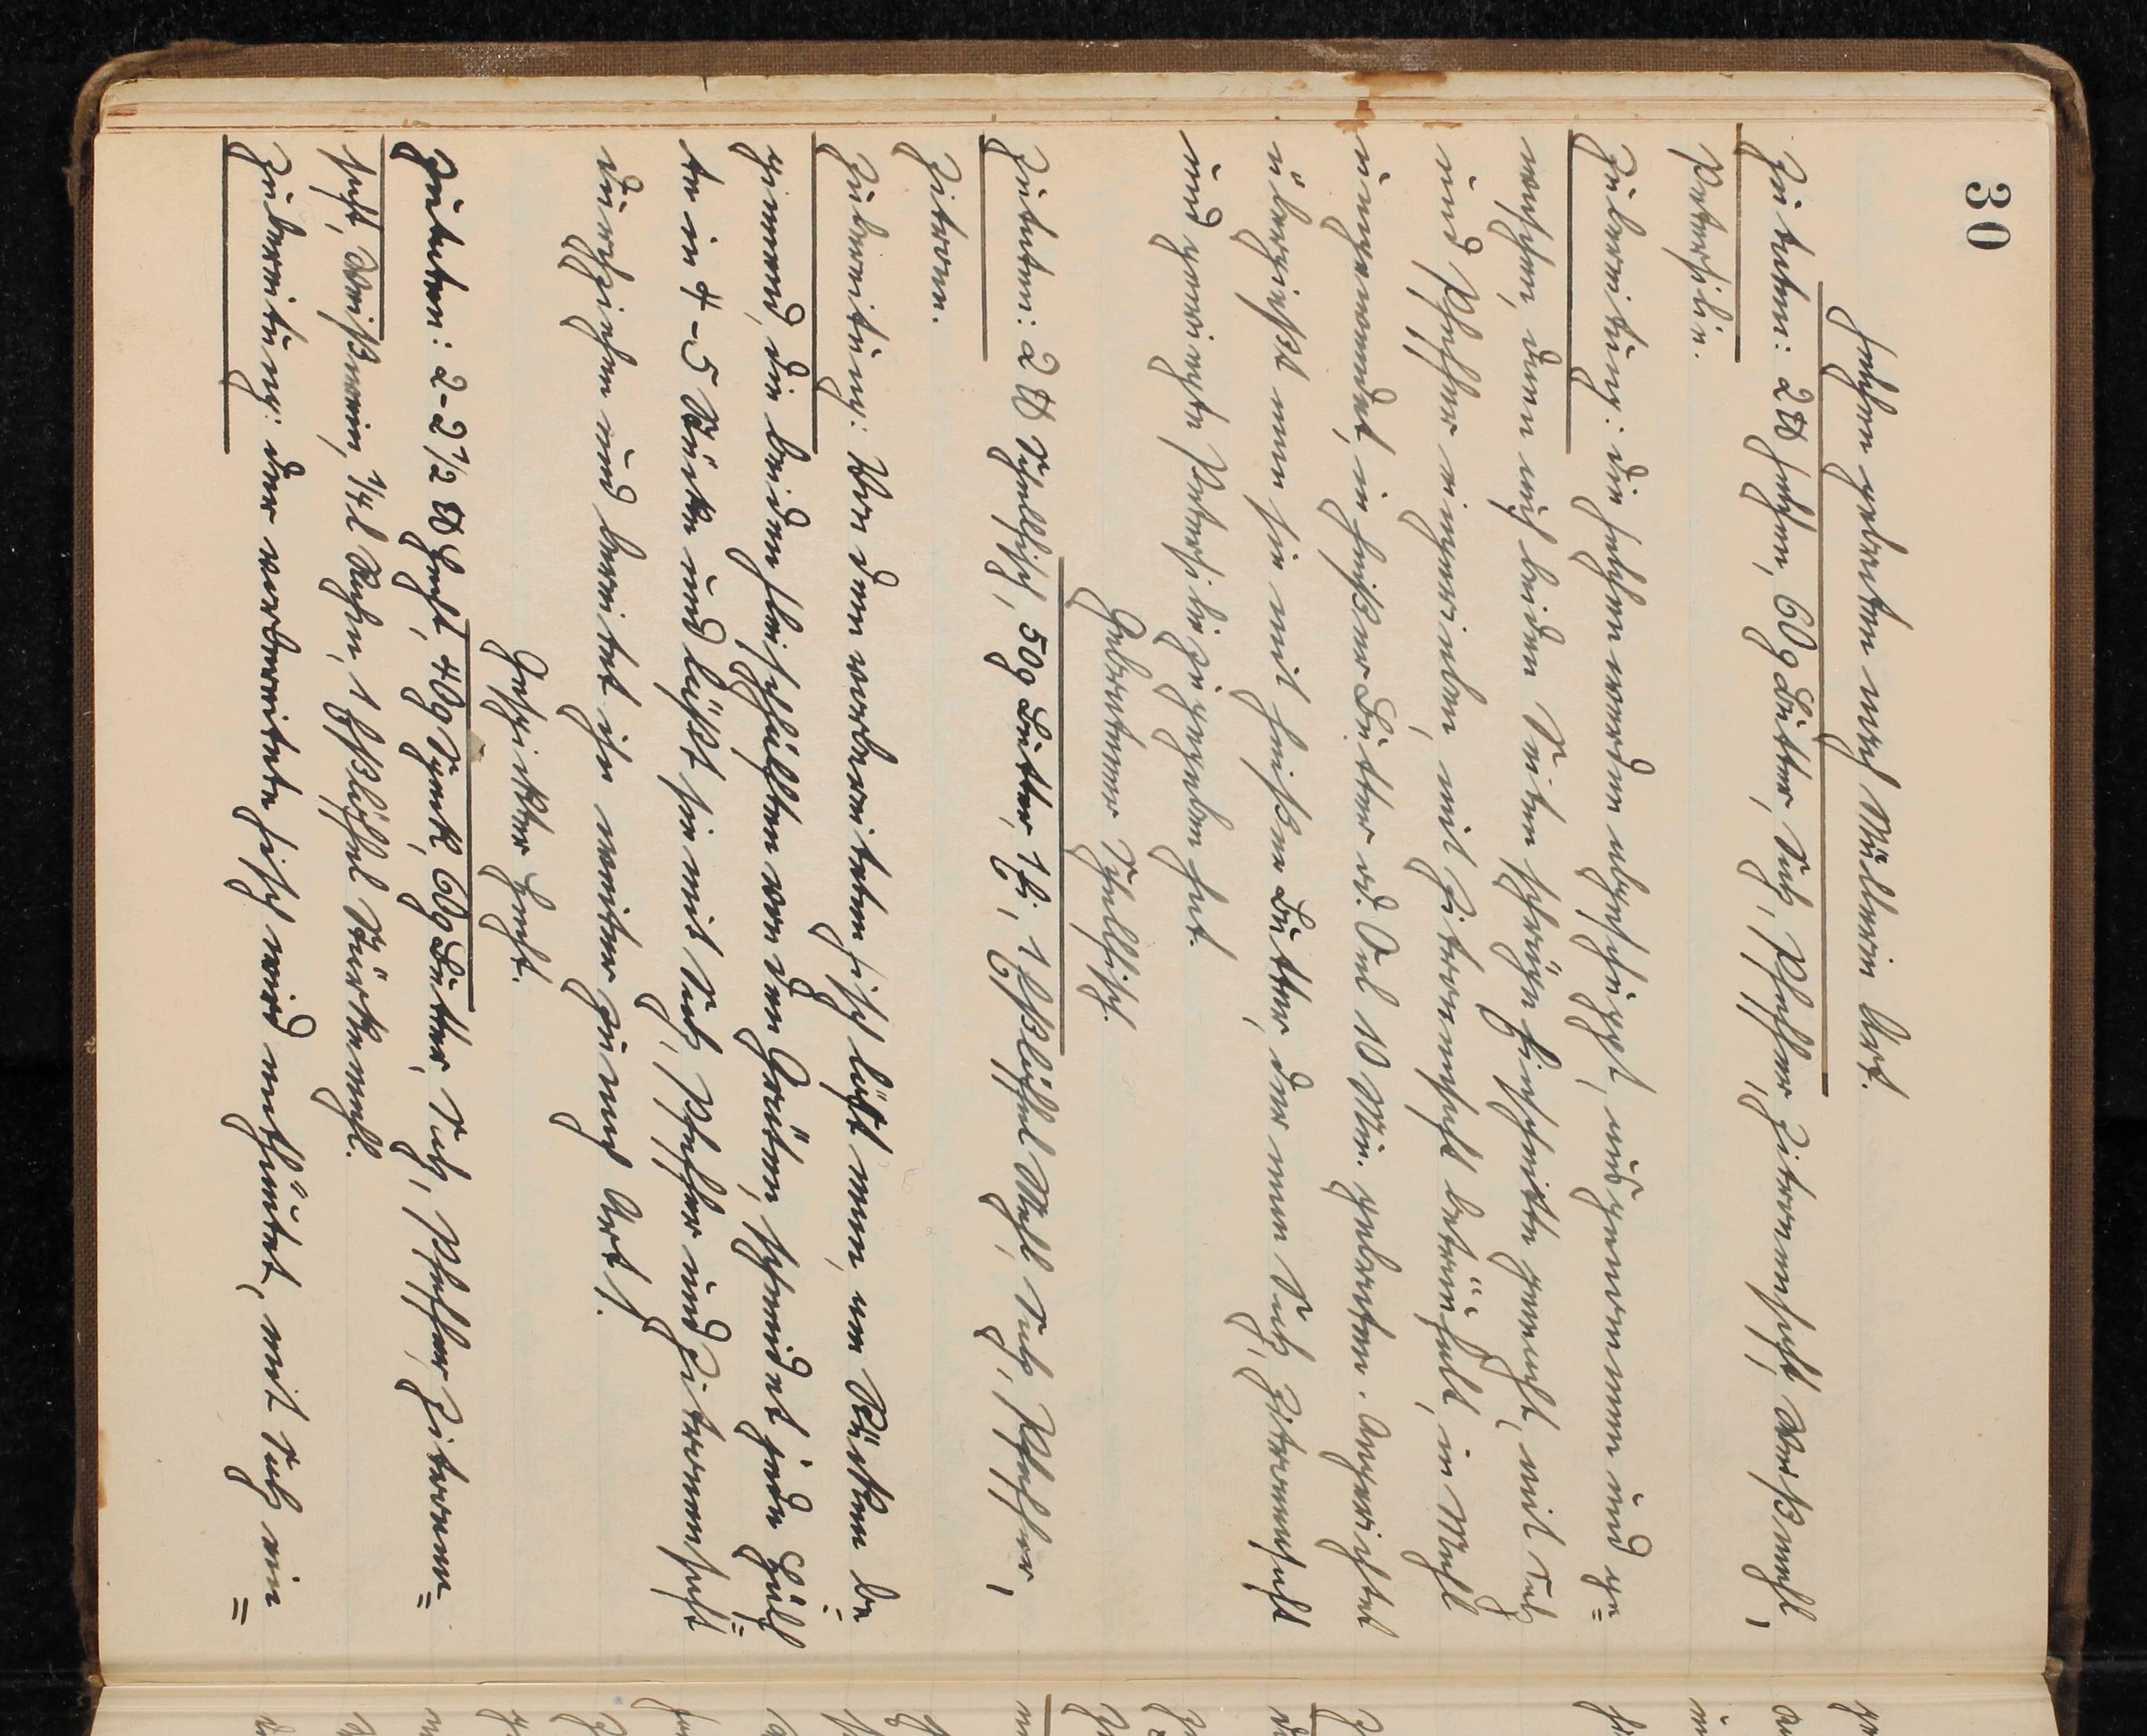 30
Felchen gebraten nach Müllerin Art.
Zutaten: 2 ℔ Felchen, 60 g Butter, Salz, Pfeffer, Zitronensaft, Weißmehl,
Petersilie.
Zubereitung: die Felchen werden abgeschuppt, ausgenommen und ge=
waschen, dann auf beiden Seiten schräge Einschnitte gemacht, mit Salz
und Pfeffer eingerieben, mit Zitronensaft beträufelt, in Mehl
umgewendet, in heißer Butter od. Oel 10 Min. gebraten. Angerichtet
übergießt man sie mit heißer Butter, der man Salz, Zitronensaft
und gewiegte Petersilie zugegeben hat.
Gebratener Schellfisch.
Zutaten: 2 ℔ Schellfisch, 50 g Butter, 1 Ei, 1 Eßlöffel Mehl, Salz, Pfeffer,
Zitrone.
Zubereitung: Von dem vorbereiteten Fisch löst man, am Rücken be=
ginnend, die beiden Fleischhälften von den Gräten, schneidet jede Hälf=
te in 4-5 Stücke und läßt sie mit Salz, Pfeffer und Zitronensaft
durchziehen und bereitet ihn weiter zu nach Art 1.
Gespickter Hecht.
Zutaten: 2-2 1/2 ℔ Hecht, 40 g Speck, 60 g Butter, Salz, Pfeffer, Zitronen=
saft, Weißwein, 1/4 l Rahm, 1 Eßlöffel Stärkemehl.
Zubereitung: der vorbereitete Fisch wird enthäutet, mit Salz ein=